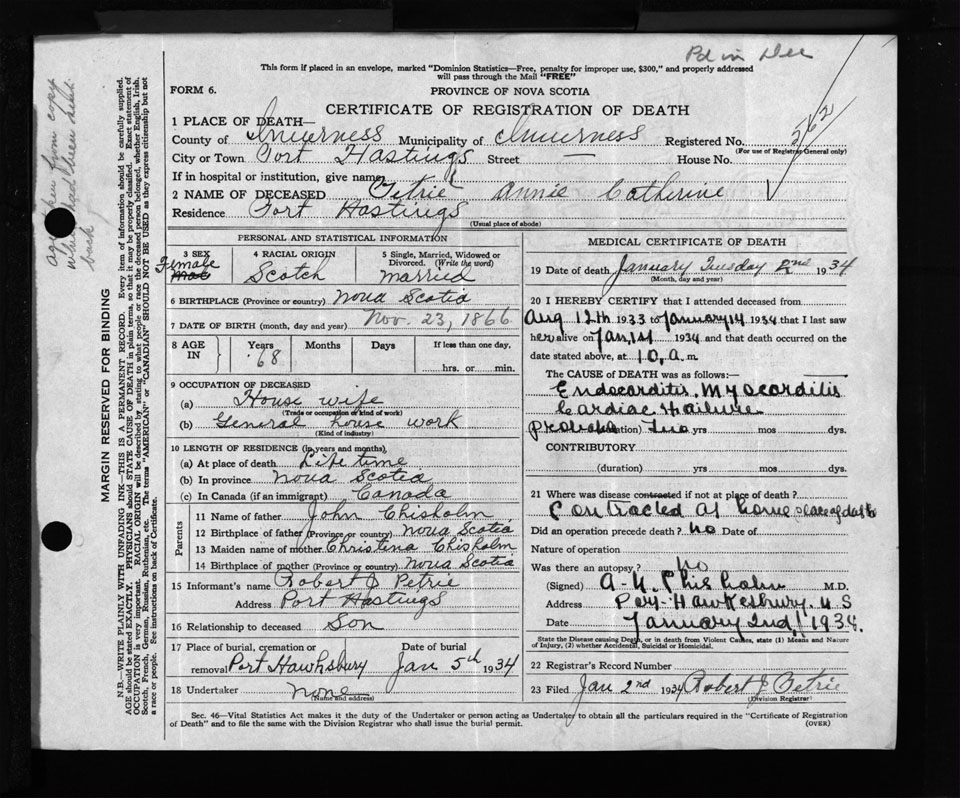 Pd in Dec
This form if placed in an envelope, marked "Dominion Statistics—Free, penalty for improper use, $300," and properly addressed
will pass through the Mail "FREE"
FORM 6.
PROVINCE OF NOVA SCOTIA
CERTIFICATE OF REGISTRATION OF DEATH
1 PLACE OF DEATH—
County of Inverness Municipality of Inverness Registered No. 562
(For use of Registrar General only)
City or Town Port Hastings Street — House No.
If in hospital or institution, give name
2 NAME OF DECEASED Petrie Annie Catherine
Residence Port Hastings
(Usual place of abode)
PERSONAL AND STATISTICAL INFORMATION
3 SEX
Female
Male
4 RACIAL ORIGIN
Scotch
5 Single, Married, Widowed or
Divorced. (Write the word)
married
6 BIRTHPLACE (Province or country) Nova Scotia
7 DATE OF BIRTH (month, day and year) Nov. 23, 1866
8 AGE
IN
Years
68
Months
Days
If less than one day,
hrs. or min.
9 OCCUPATION OF DECEASED
(a) House wife
(Trade or occupation or kind of work)
(b) General house work
(Kind of industry)
10 LENGTH OF RESIDENCE (in years and months)
(a) At place of death Life time
(b) In province Nova Scotia
(c) In Canada (if an immigrant) Canada
Parents
11 Name of father John Chisholm
12 Birthplace of father (Province or country) Nova Scotia
13 Maiden name of mother Christina Chisholm
14 Birthplace of mother (Province or country) Nova Scotia
15 Informant's name Robert J Petrie
Address Port Hastings
16 Relationship to deceased Son
17 Place of burial, cremation or
removal Port Hawksbury
Date of burial
Jan 5th 1934
18 Undertaker none
(Name and address)
MEDICAL CERTIFICATE OF DEATH
19 Date of death January Tuesday 2nd 1934
(Month, day and year)
20 I HEREBY CERTIFY that I attended deceased from
Aug 12th 1933 to January 1st 1934 that I last saw
her alive on Jan, 1st 1934 and that death occurred on the
date stated above, at 10, a. m.
The CAUSE of DEATH was as follows:
Endocarditis, Myocarditis
Cardiac Failure
Probable (duration) Two yrs mos. dys.
CONTRIBUTORY
(duration) yrs mos. dys.
21 Where was disease contracted if not at place of death?
Contracted at home place of death
Did an operation precede death? no Date of
Nature of operation
Was there an autopsy? No
(Signed) A. Chisholm M.D.
Address Port Hawkesbury N S
Date January 2nd, 1934.
State the Disease causing Death, or in death from Violent Causes, state (1) Means and Nature
of Injury, (2) whether Accidental, Suicidal or Homicidal.
22 Registrar's Record Number
23 Filed Jan 2nd 1934 Robert J Petrie
(Division Registrar)
Sec. 46—Vital Statistics Act makes it the duty of the Undertaker or person acting as Undertaker to obtain all the particulars required in the "Certificate of Registration
of Death" and to file the same with the Division Registrar who shall issue the burial permit.
(OVER)
MARGIN RESERVED FOR BINDING
N.B.—WRITE PLAINLY WITH UNFADING INK—THIS IS A PERMANENT RECORD. Every item of information should be carefully supplied.
AGE should be stated EXACTLY. PHYSICIANS should STATE CAUSE OF DEATH in plain terms, so that it may be properly classified. Exact statement of
OCCUPATION is very important. RACIAL ORIGIN will be described by stating to what people or race the deceased person belonged, whether English, Irish,
Scotch, French, German, Russian, Ruthenian, etc. The terms "AMERICAN" or "CANADIAN" SHOULD NOT BE USED as they express citizenship but not
a race or people. See instructions on back of Certificate.
age taken from copy
which had been sent
back